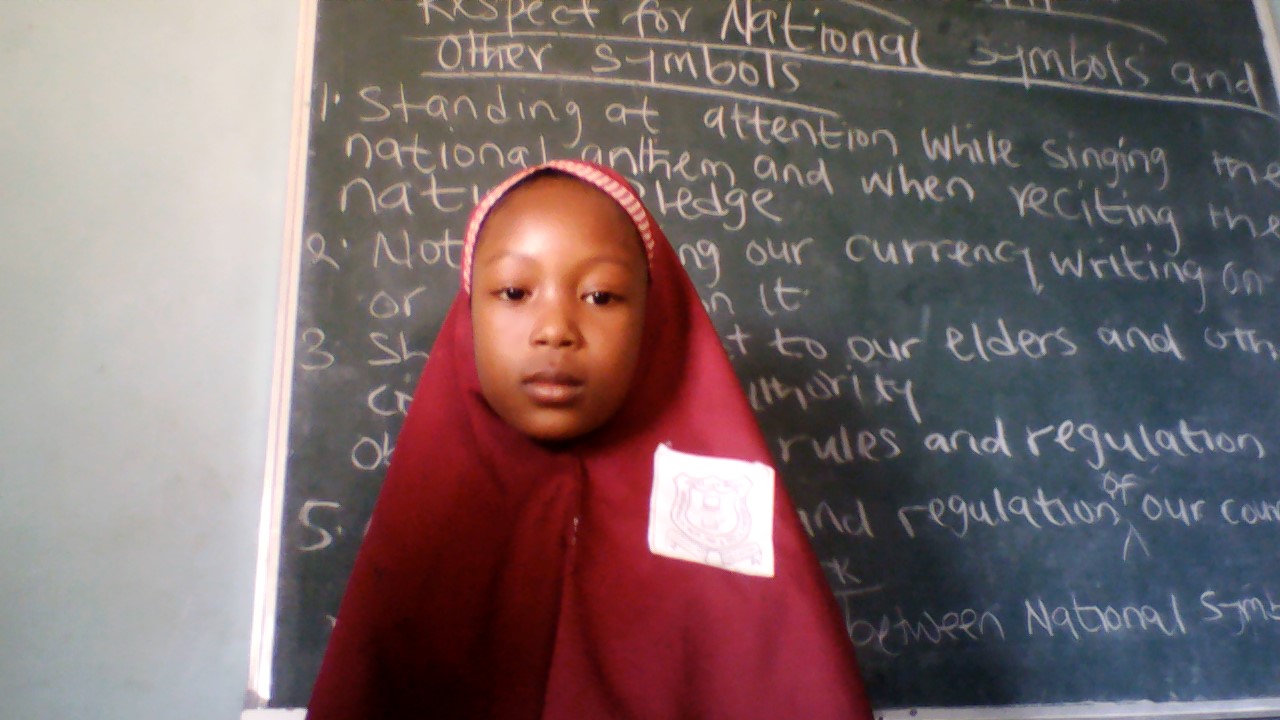 Respect for National symbols and
Other symbols
1. Standing at attention while singing the
national anthem and when reciting the
pledge
2. Not our currency, writing on
or on it.
3. to our elders and
authority
rules and regulation
5. and regulation of our
between National